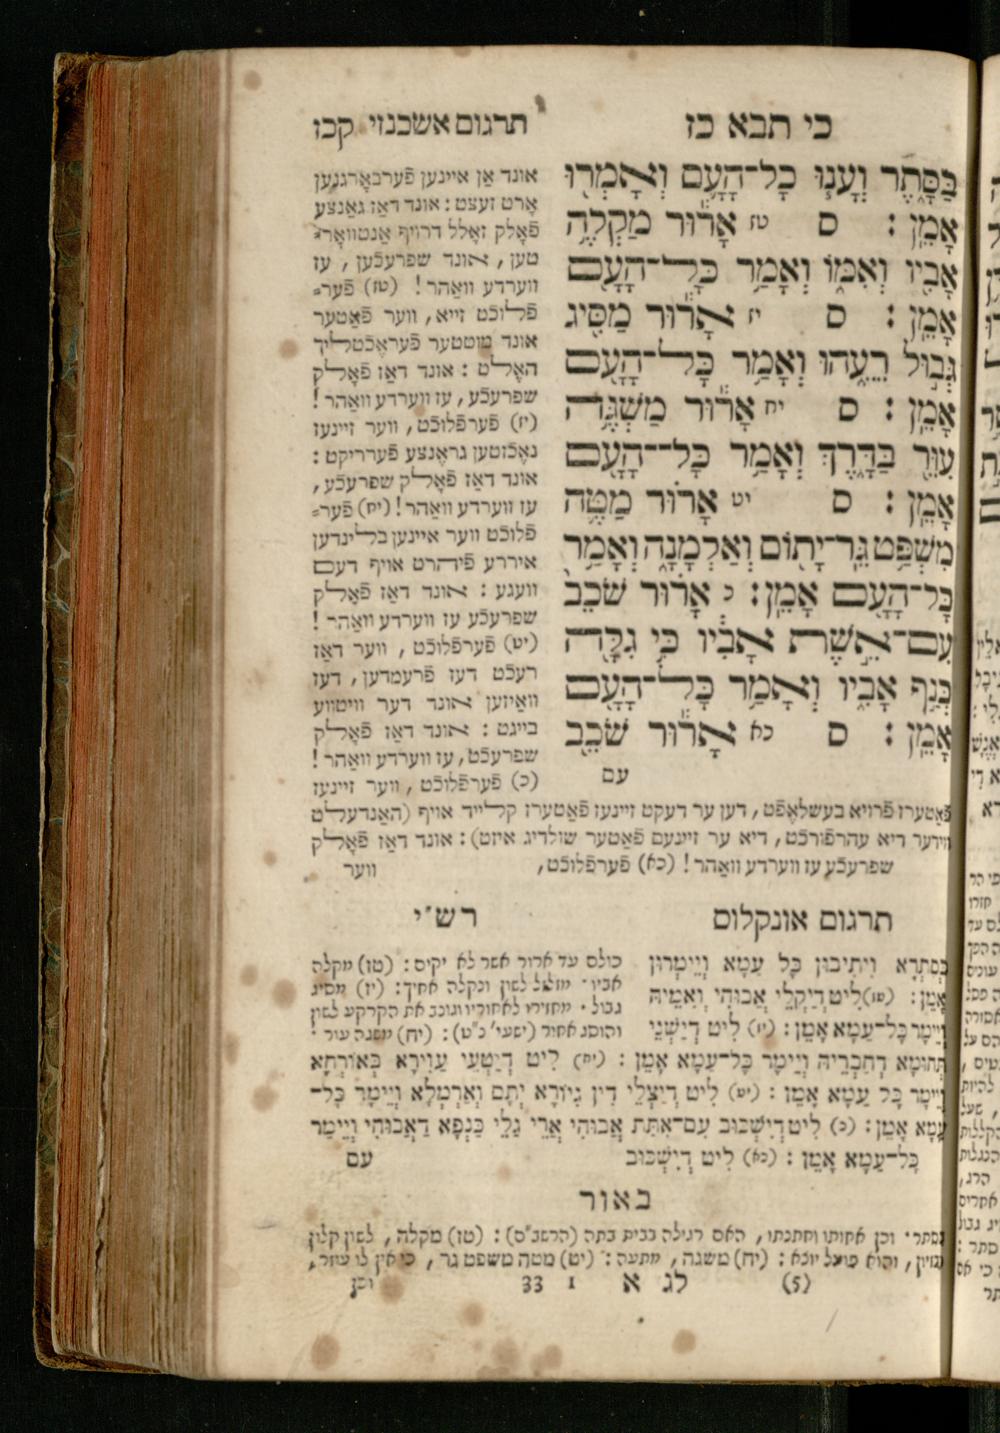 כי תבא כז
תרגום אשכנזי קכז
בַּסָּ֑תֶר וְעָנ֧וּ כָל־הָעָ֛ם וְאָמְר֖וּ
אָמֵֽן : ס טז אָר֕וּר מַקְלֶ֥ה
אָבִ֖יו וְאִמּ֑וֹ וְאָמַ֥ר כָּל־הָעָ֖ם
אָמֵֽן : ס יז אָר֕וּר מַסִּ֖יג
גְּב֣וּל רֵעֵ֑הוּ וְאָמַ֥ר כָּל־הָעָ֖ם
אָמֵֽן : ס יח אָר֕וּר מַשְׁגֶּ֥ה
עִוֵּ֖ר בַּדָּ֑רֶךְ וְאָמַ֥ר כָּל־הָעָ֖ם
אָמֵֽן : ס יט אָר֗וּר מַטֶּ֛ה
מִשְׁפַּ֥ט גֵּר־יָת֖וֹם וְאַלְמָנָ֑ה וְאָמַ֥ר
כָּל־הָעָ֖ם אָמֵֽן : כ אָר֗וּר שֹׁכֵב֙
עִם־אֵ֣שֶׁת אָבִ֔יו כִּ֥י גִלָּ֖ה
כְּנַ֣ף אָבִ֑יו וְאָמַ֥ר כָּל־הָעָ֖ם
אָמֵֽן : ס כא אָר֕וּר שֹׁכֵ֖ב
עם
אונד אַן איינען פֿערבאָרגנען
אָרט זעצט : אונד דאז גאַנצע
פֿאָלק זאָלל דרויף אַנטוואָר־
טען , אונד שפרעכֿען , עז
ווערדע וואַהר ! (טז) פֿער־
פֿלוכֿט זייא , ווער פֿאַטער
אונד מוטטער פֿעראֶכֿטליך
האֶלט : אונד דאז פֿאָלק
שפרעכֿע , עז ווערדע וואַהר !
(יז) פֿערפֿלוכֿט , ווער זיינעז
נאֶכֿזטען גראֶנצע פֿערריקט :
אונד דאז פֿאָלק שפרעכֿע ,
עז ווערדע וואַהר ! (יח) פֿער־
פֿלוכֿט ווער איינען בלינדען
איררע פֿיהרט אויף דעם
וועגע : אונד דאז פֿאָלק
שפרעכֿע עז ווערדע וואַהר !
(יט) פֿערפֿלוכֿט , ווער דאז
רעכֿט דעז פֿרעמדען , דעז
וואַיזען אונד דער וויטווע
בייגט : אונד דאז פֿאָלק
שפרעכֿט , עז ווערדע וואַהר !
(כ) פֿערפֿלוכֿט , ווער זיינעז
פֿאַטערז פֿרויא בעשלאֶפֿט , דען ער דעקט זיינעז פֿאַטערז קלייד אויף (האַנדעלט
ווידער דיא עהרפֿורכֿט , דיא ער זיינעם פֿאַטער שולדיג איזט) : אונד דאז פֿאָלק
שפרעכֿע עז ווערדע וואַהר ! (כא) פֿערפֿלוכֿט , ווער
תרגום אונקלוס
בְּסִתְרָא וִיתִיבוּן כָּל עַמָּא וְיֵימְרוּן
אָמֵן : (טז) לִיט דְּיַקְלֵי אֲבוּהִי וְאִמֵּיהּ
וְיֵימַר כָּל־עַמָּא אָמֵן : (יז) לִיט דְּיַשְׁנֵי
תְּחוּמָא דְחַבְרֵיהּ וְיֵימַר כָּל־עַמָּא אָמֵן : (יח) לִיט דְּיַטְעֵי עֲוִירָא בְּאוֹרְחָא
וְיֵימַר כָּל עַמָּא אָמֵן : (יט) לִיט דְּיַצְלֵי דִין גִּיּוֹרָא יְתַם וְאַרְמְלָא וְיֵימַר כָּל־
עַמָּא אָמֵן : (כ) לִיט דְּיִשְׁכּוּב עִם־אִתַּת אֲבוּהִי אֲרֵי גַלֵּי כַּנְפָא דַאֲבוּהִי וְיֵימַר
כָּל־עַמָּא אָמֵן : (כא) לִיט דְּיִשְׁכּוּב עם
רש״י
כולם עד ארור אשר לא יקים : (טז) מקלה
אביו · מזלזל לשון ונקלה אחיך : (יז) מסיג
גבול · מחזירו לאחוריו וגונב את הקרקע לשון
והוסג אחור (ישעי׳ נ״ט) : (יח) משגה עור ·
באור
בסתר · וכן אחותו וחתנתו , האם רגילה בבית בתה (הרשב״ם) : (טז) מקלה , לשון קלון
ובזיון , והוא פועל יוצא : (יח) משגה , מתעה : (יט) מטה משפט גר , כי אין לו עוזר ,
(5) לג א 1 33 וכן